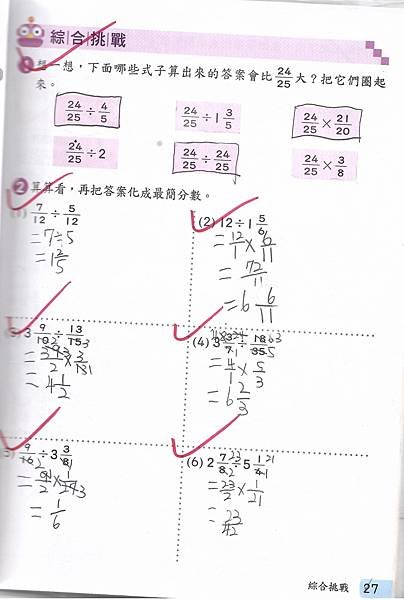 綜合挑戰
1 想一想，下面哪些式子算出來的答案會比 24/25 大？把它們圈起
來。
24/25 ÷ 4/5
24/25 ÷ 1 3/5
24/25 × 21/20
24/25 ÷ 2
24/25 ÷ 24/25
24/25 × 3/8
2 算算看，再把答案化成最簡分數。
(1) 7/12 ÷ 5/12
= 7÷5
= 1 2/5
(2) 12 ÷ 1 5/6
= 12/1 × 6/11
= 72/11
= 6 6/11
÷ 13/15
= 4 1/2
(4)
= 4/1 × 5/3
= 6 2/3
÷ 3 3/8
= 1/6
(6) 2 7/8 ÷ 5 1/4
= 23/2 × 1/21
= 23/42
綜合挑戰 27